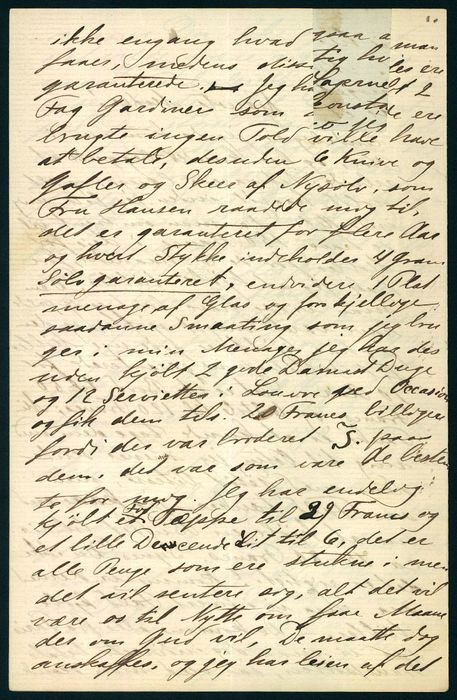 ikke engang hvad paa a man
faaes, medens disse
garanterede. Jeg ha 2
Fag Gardiner som ere
brugte ingen Told ville have
at betale, desuden 6 Knive og
Gafler og Skeer af Nysølv, som
Fru Hansen raadede mig til,
det er garanteret for flere Aar
og hvert Stykke indeholder 4 Gram
Sølv garanteret, endvidere 1 Plat
menage af Glas og forskjellige
saadanne Smaating som jeg bru
ger i min Menage, jeg har des
uden kjøbt 2 gode Damast Duge
og 12 Servietter i Louvre ved Occasion
og fik dem til 20 Francs billigere
fordi der var broderet S. paa
dem, det var som vare de bestem
te for mig. Jeg har endelig
kjøbt et Tæppe til 29 Francs og
et lille Descende lit til 6, det er
alle Penge som ere stukne i men
det vil rentere sig, alt det vil
være os til Nytte om faae Maane
der om Gud vil, De maatte dog
anskaffes, og jeg har leien af det